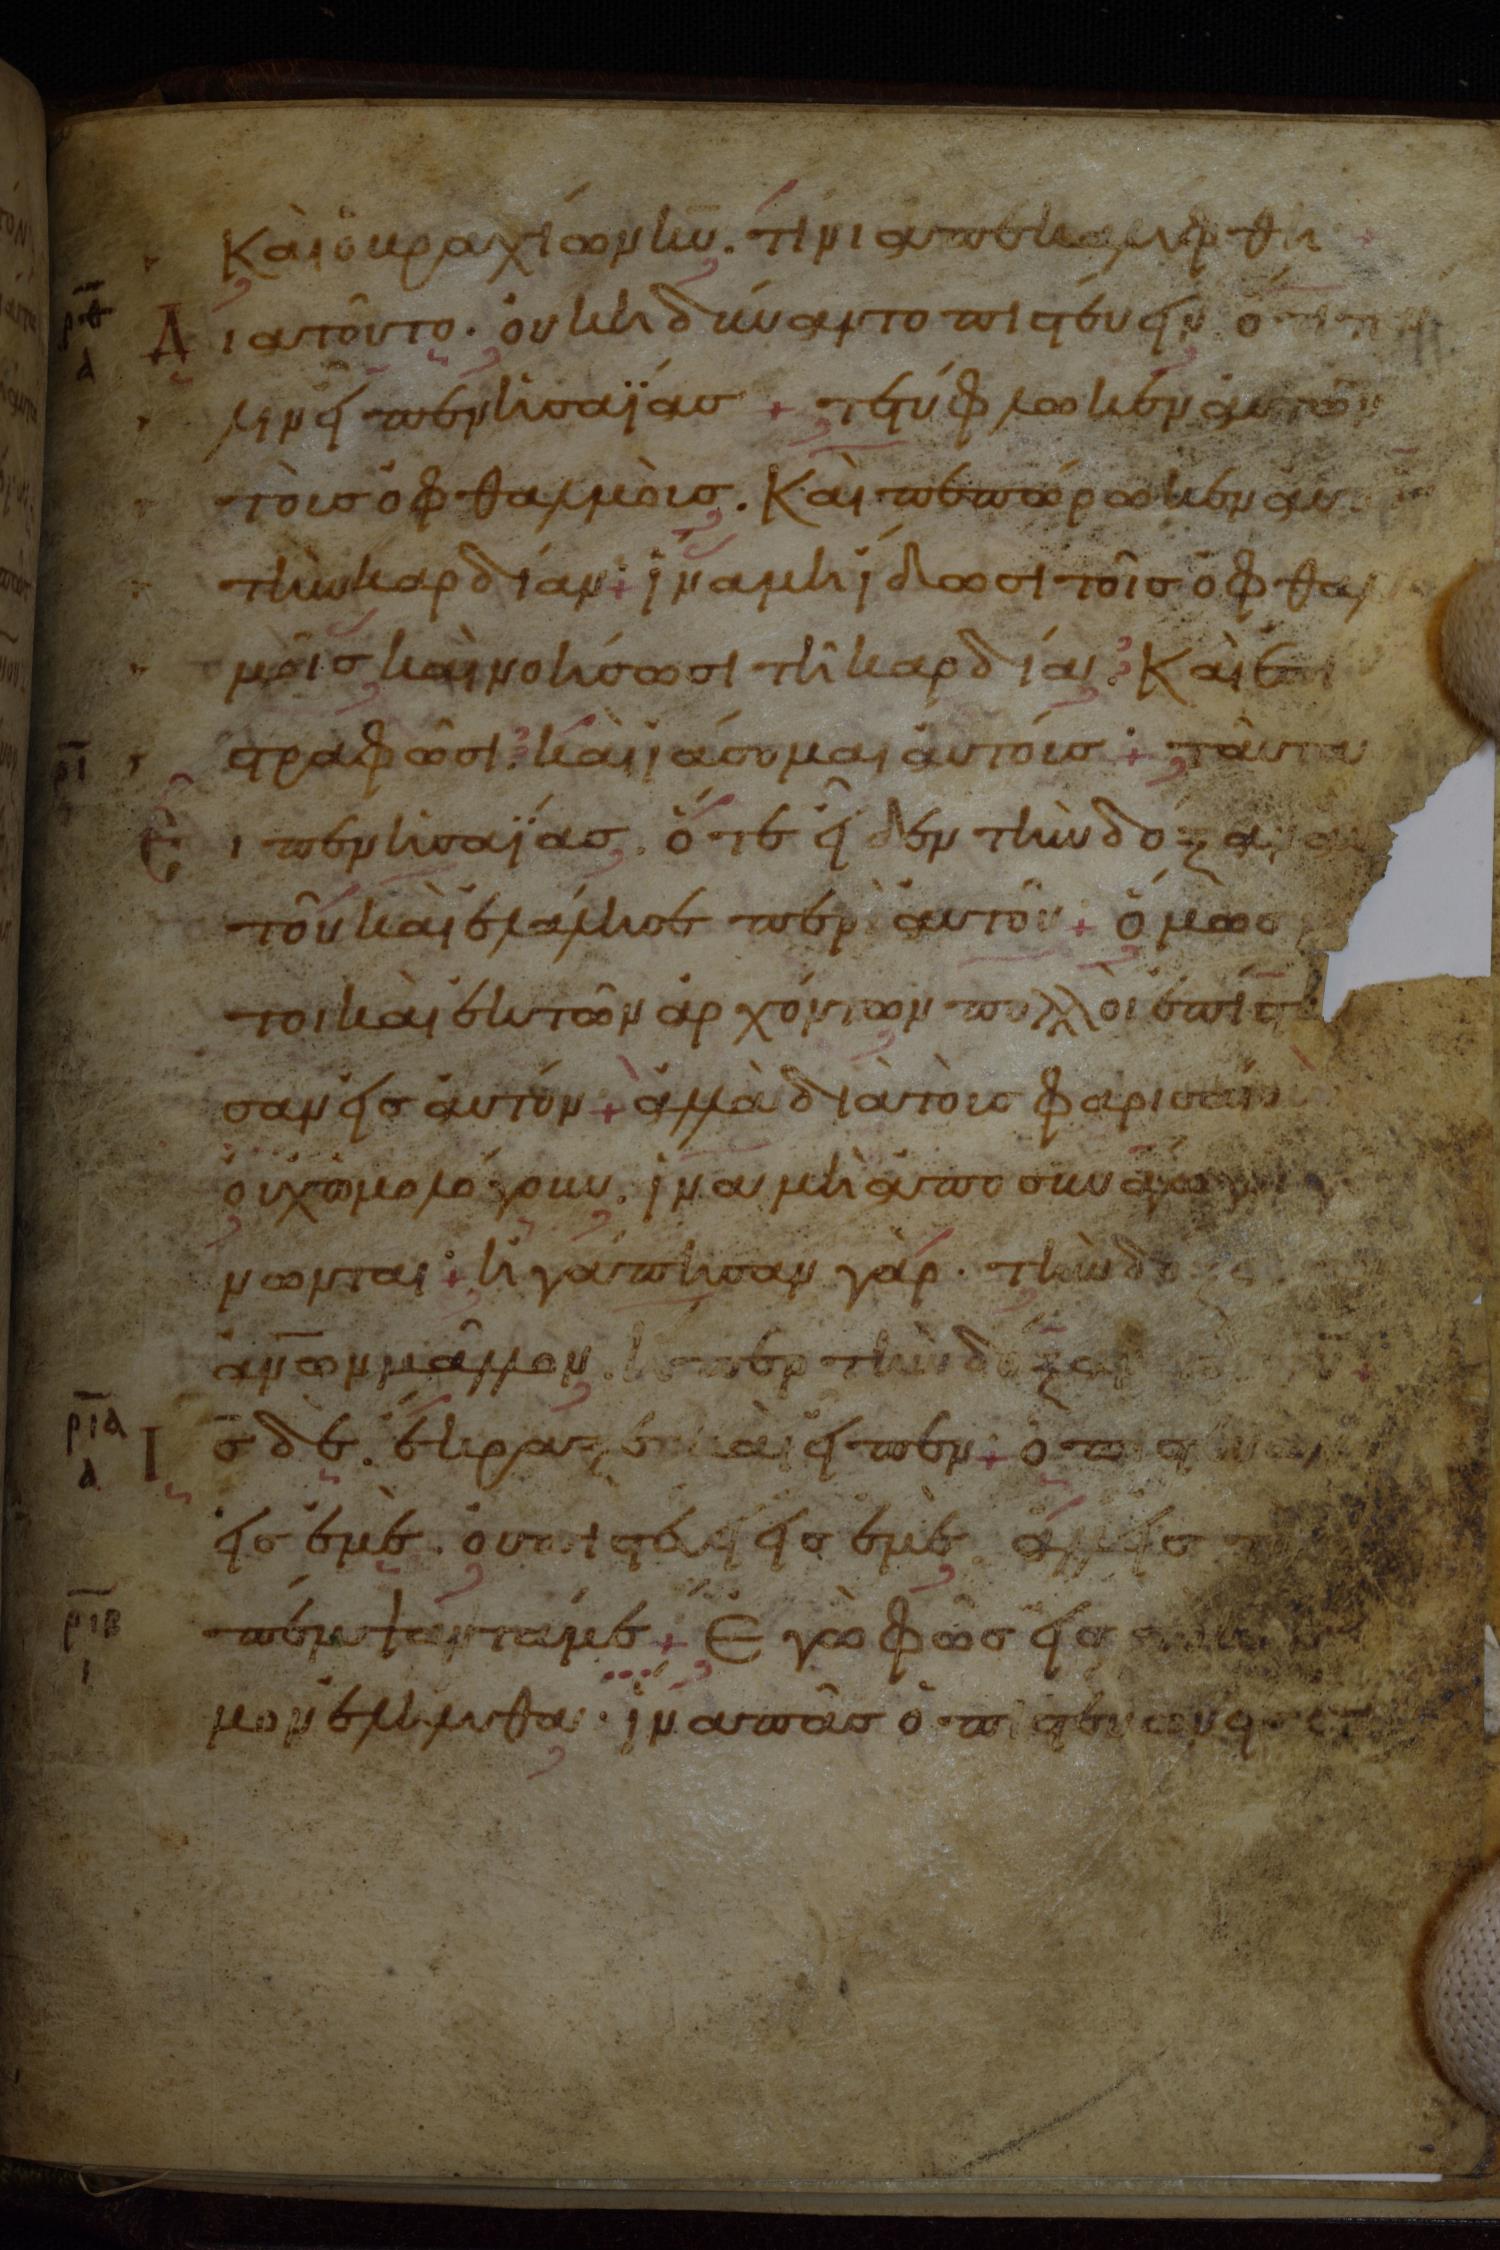 Καὶ ὁ βραχίων κυ. τίνι ἀπεκαλύφθη +
ρθ α Διατοῦτο. οὐκ ἠδύναντο πιστεύειν ὅτι πά
λιν εἶπεν ἡσαΐας + τετύφλωκεν αὐτῶν
τοὺς ὀφθαλμοὺς. Καὶ πεπώρωκεν αὐτῶν
τὴν καρδίαν + ἵνα μὴ ἴδωσι τοῖς ὀφθαλ
μοῖς καὶ νοήσωσι τῆ καρδίαι. Καὶ ἐπι
ρι στραφῶσι. καὶ ἰάσομαι αὐτούς + ταῦτα
Εἶπεν ἡσαΐας. ὅτε εἶδεν τὴν δόξαν αυ
τοῦ καὶ ἐλάλησε περὶ αὐτοῦ + ὅμως
τοι καὶ ἐκ τῶν ἀρχόντων πολλοὶ ἐπίστευ
σαν εἰς αὐτόν + ἀλλὰ διὰ τοὺς φαρισαίους
οὐχ ὡμολόγουν. ἵνα μὴ ἀποσυνάγωγοι γε
νωνται + ἠγάπησαν γὰρ. τὴν δόξαν
ἀνων μᾶλλον. ἤπερ τὴν δόξαν τοῦ θυ +
ρια α Ις δὲ. ἔκραξε καὶ εἶπεν + ὁ πιστεύων
εἰς ἐμὲ. οὐ πιστεύει εἰς ἐμὲ ἀλλ εἰς τὸν
ριβ ι πέμψαντά με + Ἐγὼ φῶς εἰς τὸν κόσ
μον ἐλήλυθα. ἵνα πᾶς ὁ πιστεύων εἰς ἐ